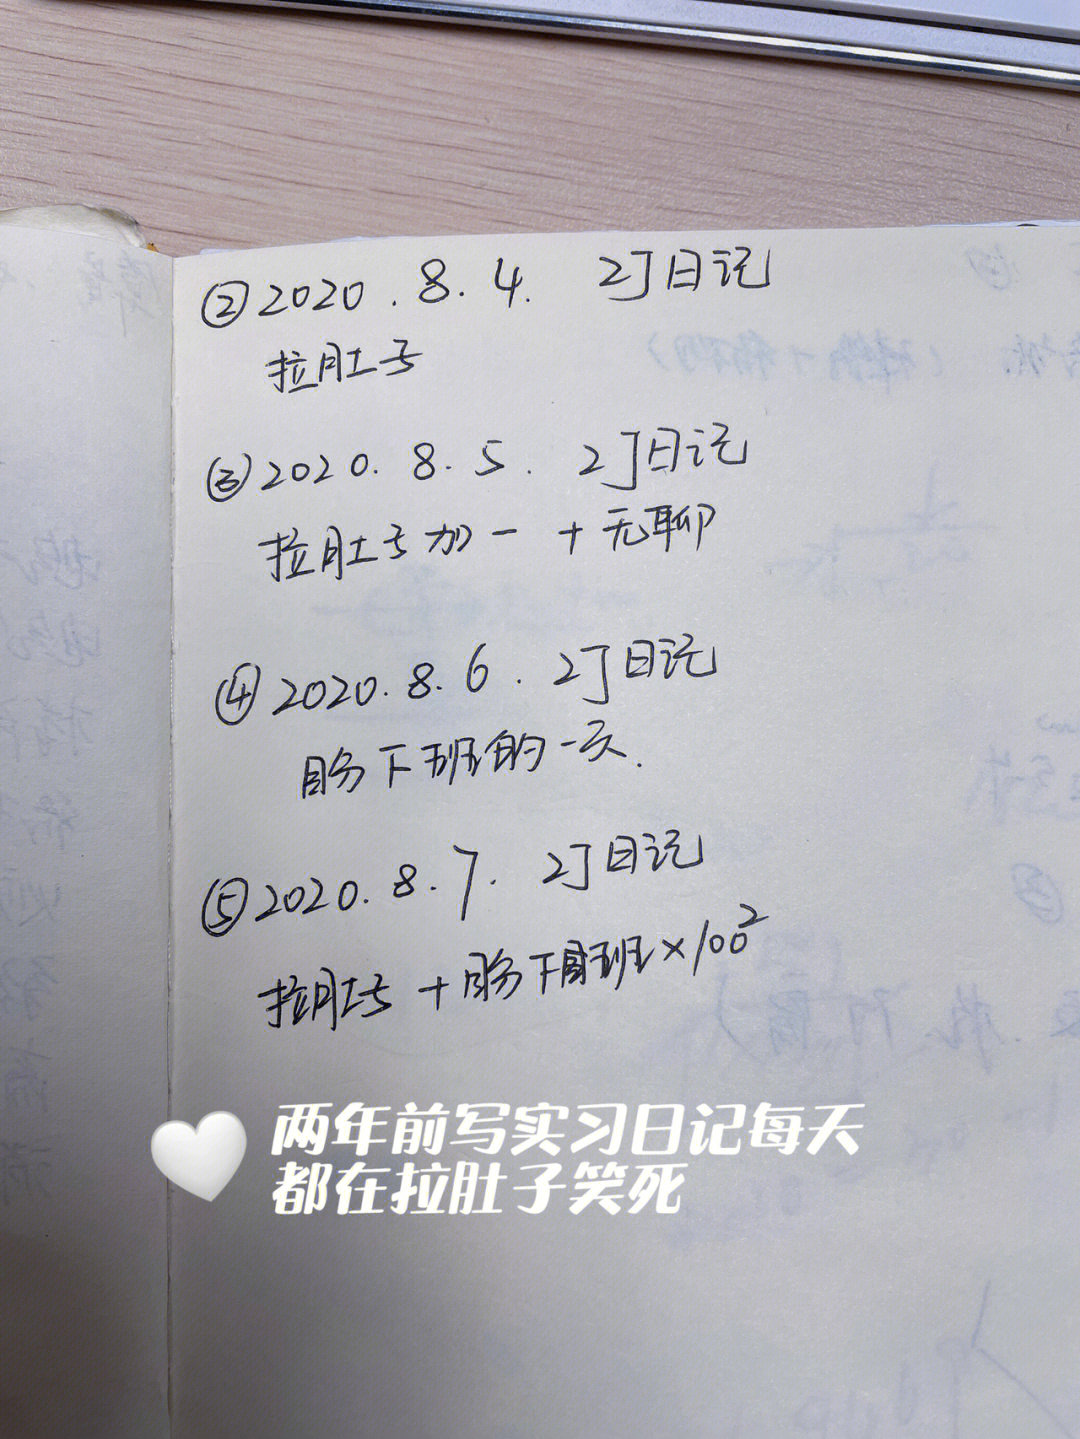 ②2020.8.4. 2丁日记
拉肚子
③2020.8.5. 2丁日记
拉肚子加一 + 无聊
④2020.8.6. 2丁日记
盼下班的一天.
⑤2020.8.7. 2丁日记
拉肚子 + 盼下班×100²
两年前写实习日记每天
都在拉肚子笑死